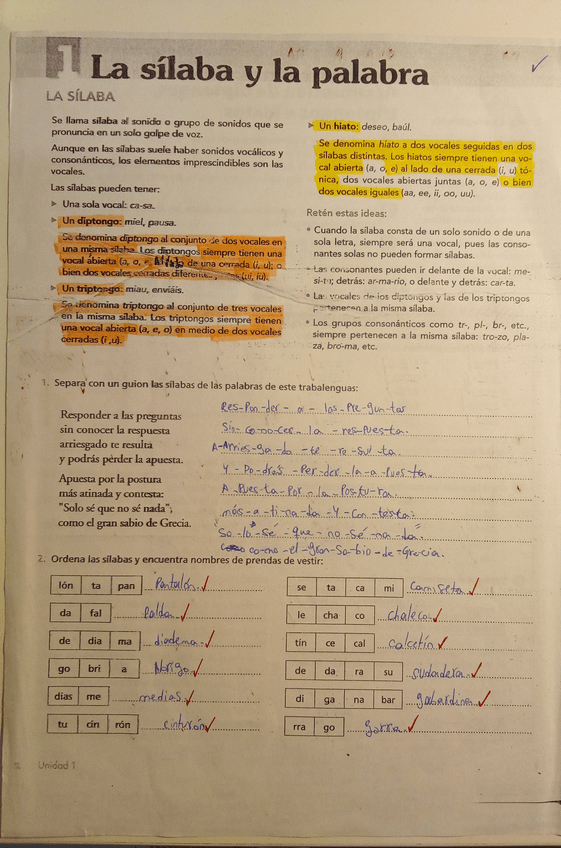 1 La sílaba y la palabra
LA SÍLABA
Se llama sílaba al sonido o grupo de sonidos que se
pronuncia en un solo golpe de voz.
Aunque en las sílabas suele haber sonidos vocálicos y
consonánticos, los elementos imprescindibles son las
vocales.
Las sílabas pueden tener:
Una sola vocal: ca-sa.
Un diptongo: miel, pausa.
Se denomina diptongo al conjunto de dos vocales en
una misma sílaba. Los diptongos siempre tienen una
vocal abierta (a, o, e) de una cerrada (i, u); o
bien dos vocales cerradas diferentes (ui, iu).
Un triptongo: miau, enviáis.
Se denomina triptongo al conjunto de tres vocales
en la misma sílaba. Los triptongos siempre tienen
una vocal abierta (a, e, o) en medio de dos vocales
cerradas (i ,u).
Un hiato: deseo, baúl.
Se denomina hiato a dos vocales seguidas en dos
sílabas distintas. Los hiatos siempre tienen una vo-
cal abierta (a, o, e) al lado de una cerrada (i, u) tó-
nica, dos vocales abiertas juntas (a, o, e) o bien
dos vocales iguales (aa, ee, ii, oo, uu).
Retén estas ideas:
Cuando la sílaba consta de un solo sonido o de una
sola letra, siempre será una vocal, pues las conso-
nantes solas no pueden formar sílabas.
Las consonantes pueden ir delante de la vocal: me-
si-ta; detrás: ar-ma-rio, o delante y detrás: car-ta.
Las vocales de los diptongos y las de los triptongos
pertenecen a la misma sílaba.
Los grupos consonánticos como tr-, pl-, br-, etc.,
siempre pertenecen a la misma sílaba: tro-zo, pla-
za, bro-ma, etc.
1. Separa con un guion las sílabas de las palabras de este trabalenguas:
Responder a las preguntas
sin conocer la respuesta
arriesgado te resulta
y podrás perder la apuesta.
Apuesta por la postura
más atinada y contesta:
"Solo sé que no sé nada",
como el gran sabio de Grecia.
Res-Pon-der-a-las-Pre-gun-tas
Sin-co-no-cer-la-res-pues-ta.
A-Arries-ga-do-te-re-sul-ta.
Y-Po-dras-Per-der-la-a-Pues-ta.
A-Pues-ta-Por-la-Pos-tu-ra.
más-a-ti-na-da-Y-con-testa:
So-lo-sé-que-no-sé-na-da"
co-mo-el-gran-Sa-bio-de-Grecia.
2. Ordena las sílabas y encuentra nombres de prendas de vestir:
lón ta pan Pantalón.
da fal Falda.
de dia ma diadema.
go bri a Abrigo.
dias me medias.
tu cin rón cinturón
se ta ca mi Camiseta.
le cha co chaleco.
tín ce cal calcetín.
de da ra su sudadera.
di ga na bar gabardina.
rra go gorra.
Unidad 1